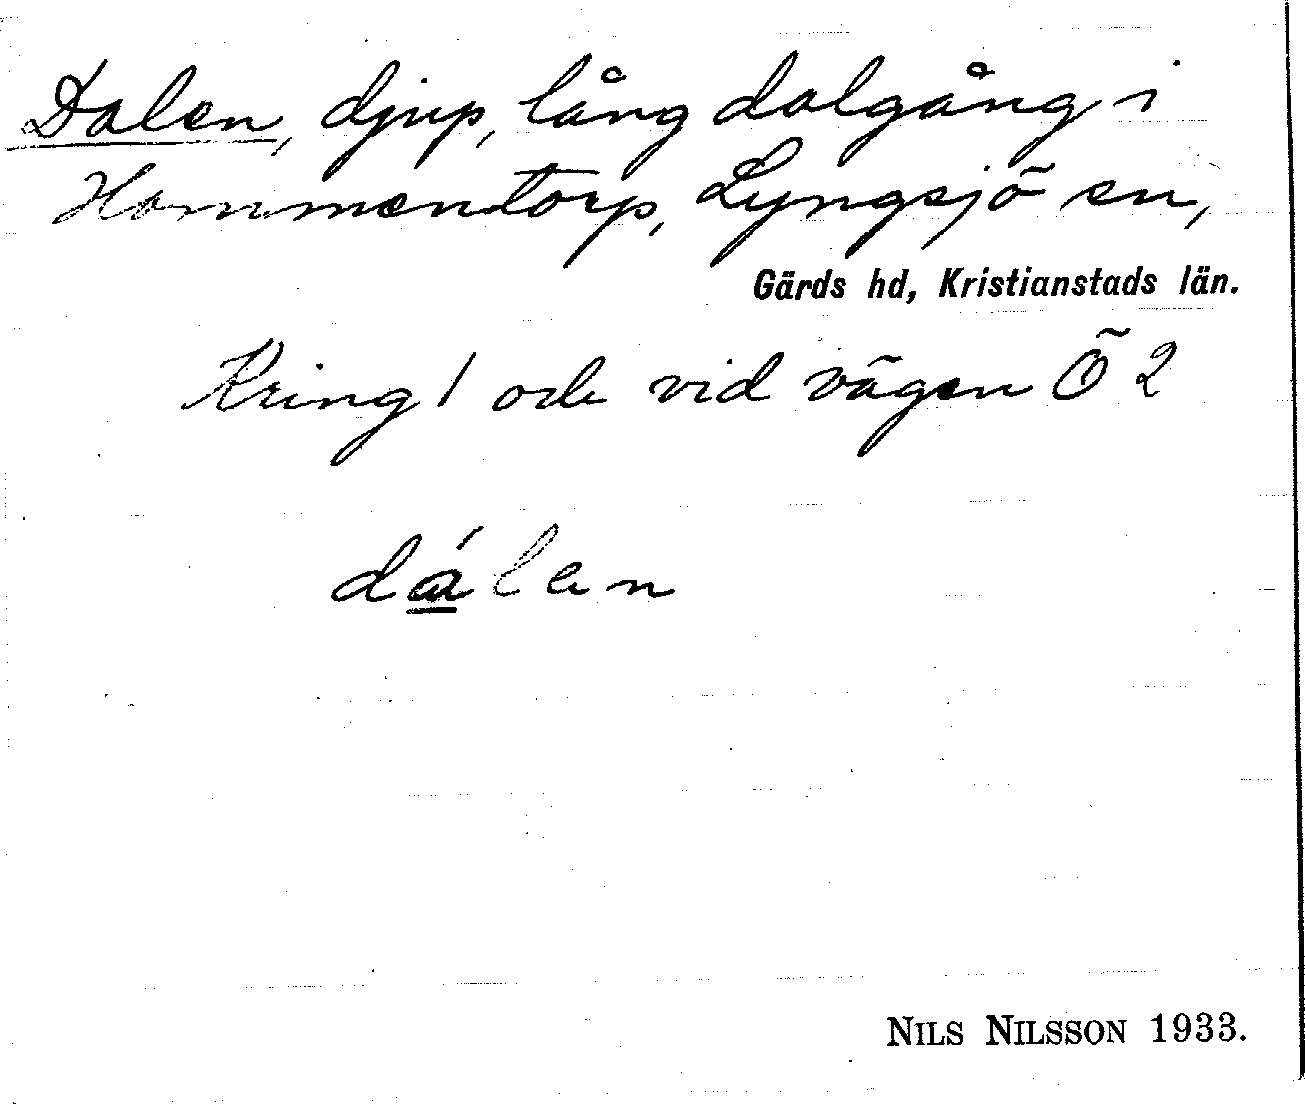 Dalen, djup, lång dalgång i
Hommentorp, Lyngsjö sn,
Gärds hd, Kristianstads län.
Kring 1 och vid vägen Ö 2
dálen
NILS NILSSON 1933.